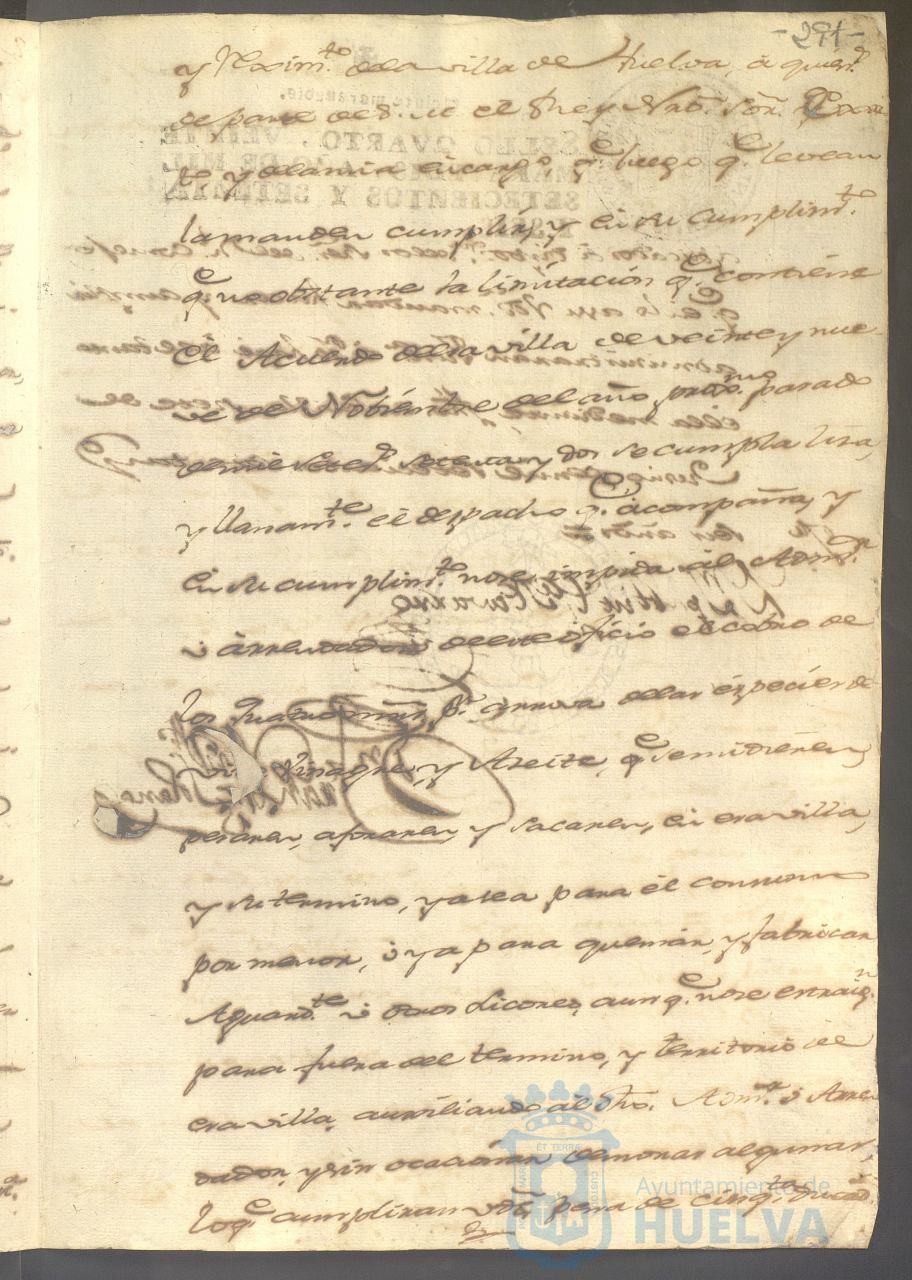 -291-
y Rexim.to de la villa de Huelva, á quien.s
de parte de S. M. el Rey Nro. Señ.r
te y de la mia encargo, q.e luego q.e le vean
la manden cumplir, y en su cumplim.to
q.e no obstante la limitación q.e contiene
el Acuerdo de esa villa de veinte y nue-
ve de Nobiembre del año prox.mo pasado
de mil setec.s setenta y dos se cumpla lisa,
y llanam.te el despacho q.e acompaña, y
en su cumplim.to no se impida al Adm.r
ó arrendador de este oficio el cobro de
los quatro mrs, p.r arrova de las especies de
Vino Vinagre, y Azeite, q.e se midieren,
pesaren, aforaren, y sacaren, en esa villa,
y su termino, ya sea para el consumo
por menor, ó ya para quemar, y fabricar
Aguard.te ú otros Licores, aunq.e no se extraig.n
para fuera del termino, y territorio de
esa villa, auxiliando al dho. Adm.r ó Arren
dador, y sin ocacionar demoras algunas,
lo q.e cumpliran Vds, pena de cinq.ta ducad.s
SELLO QVARTO, VEINTE
MARAVEDIS, AÑO DE MIL
SETECIENTOS Y SETENTA
Ayuntamiento de
HUELVA